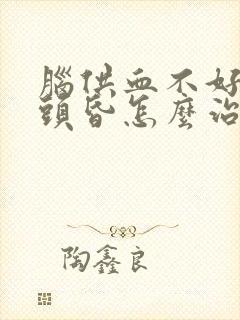 腦供血不好
頭昏怎麼治
陶鑫良